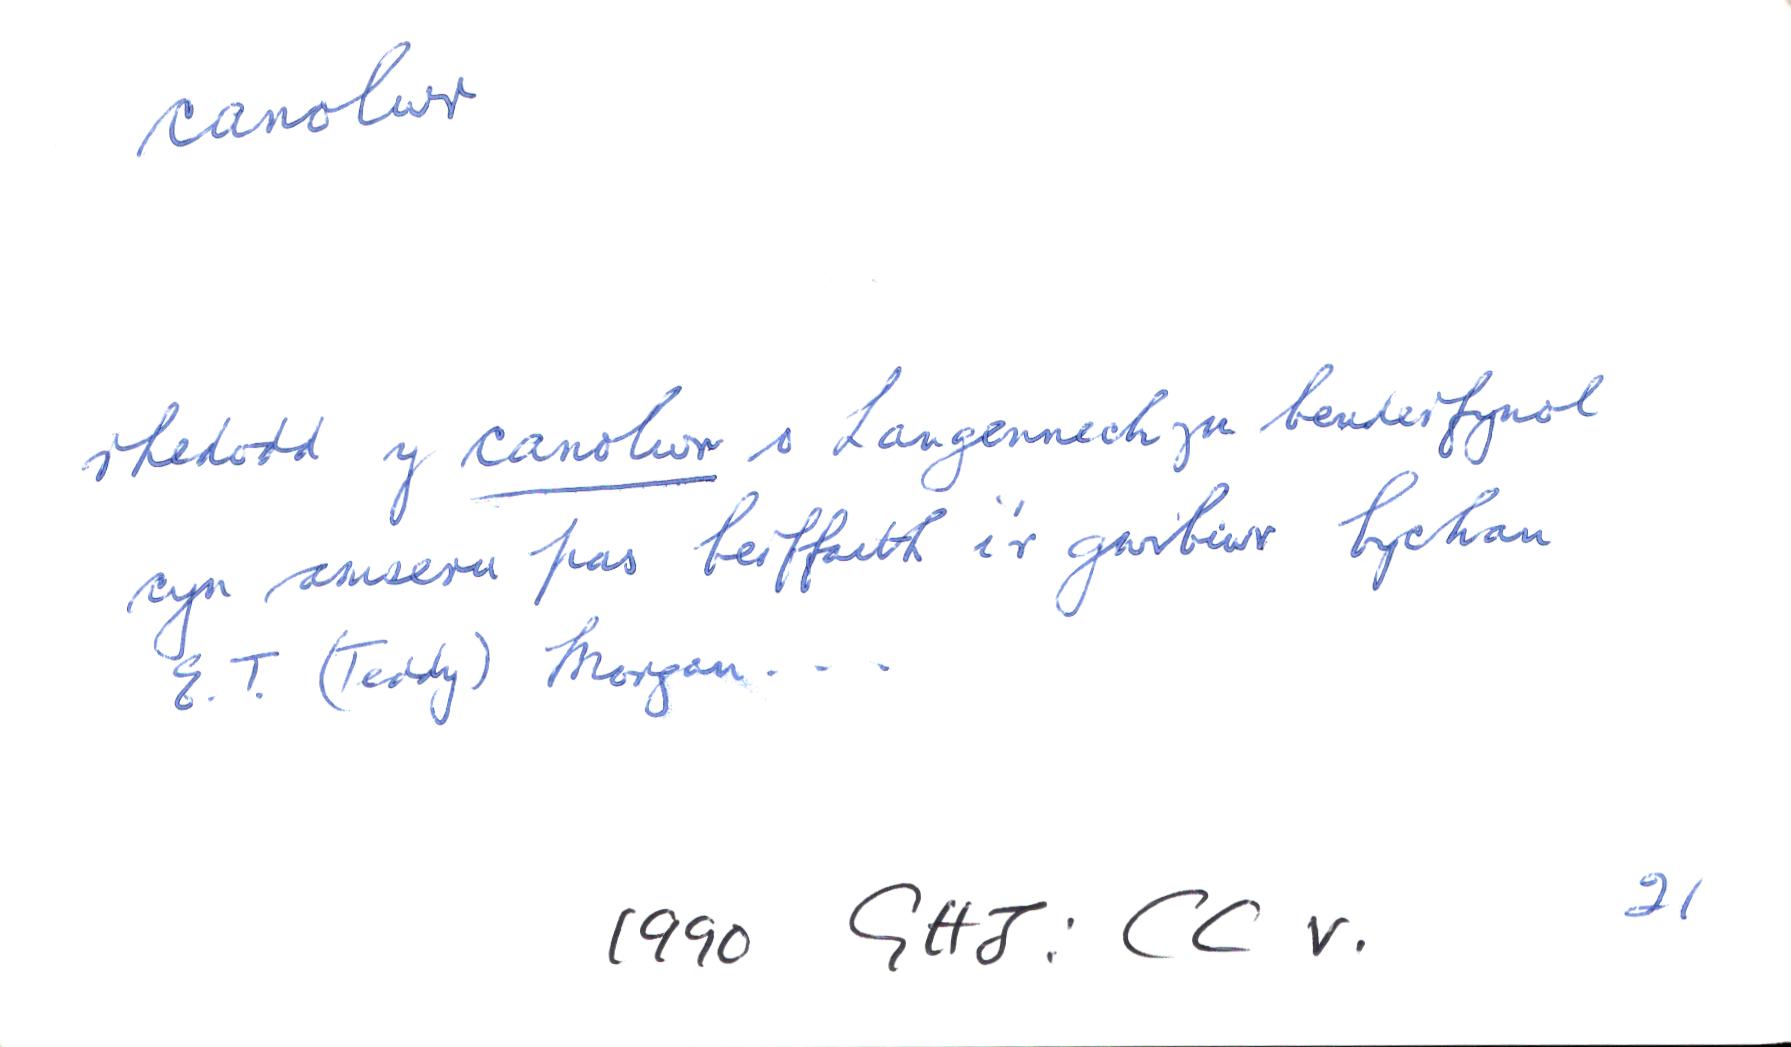 canolwr
rhedodd y canolwr o Langennech yn benderfynol
cyn amseru pas berffaith i'r gwibiwr bychan
E.T. (Teddy) Morgan . . .
21
1990 GHJ: CC v.